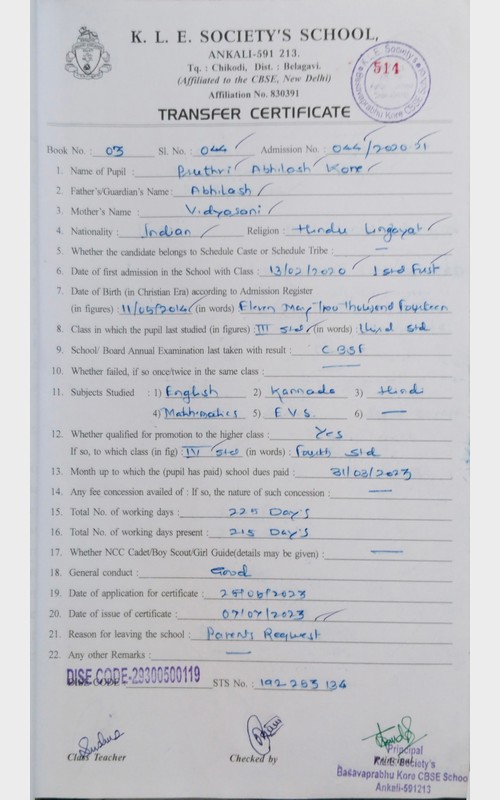 K. L. E. SOCIETY'S SCHOOL,
ANKALI-591 213.
Tq. : Chikodi, Dist. : Belagavi.
(Affiliated to the CBSE, New Delhi)
Affiliation No. 830391
514
TRANSFER CERTIFICATE
Book No. : 03 Sl. No. : 044 Admission No. : 044/2020-21
1. Name of Pupil : Pruthvi Abhilash Kore
2. Father's/Guardian's Name : Abhilash
3. Mother's Name : Vidyarani
4. Nationality : Indian Religion : Hindu Lingayat
5. Whether the candidate belongs to Schedule Caste or Schedule Tribe : —
6. Date of first admission in the School with Class : 13/02/2020 1 std First
7. Date of Birth (in Christian Era) according to Admission Register
(in figures) 11/05/2014 (in words) Eleven May Two thousand Fourteen
8. Class in which the pupil last studied (in figures) III std (in words) : third std
9. School/ Board Annual Examination last taken with result : CBSE
10. Whether failed, if so once/twice in the same class : —
11. Subjects Studied : 1) English 2) Kannada 3) Hindi
4) Mathematics 5) E.V.S. 6) —
12. Whether qualified for promotion to the higher class : Yes
If so, to which class (in fig) IV std (in words) : fourth std
13. Month up to which the (pupil has paid) school dues paid : 31/03/2023
14. Any fee concession availed of : If so, the nature of such concession : —
15. Total No. of working days : 225 Day's
16. Total No. of working days present : 215 Day's
17. Whether NCC Cadet/Boy Scout/Girl Guide(details may be given) : —
18. General conduct : Good
19. Date of application for certificate : 28/06/2023
20. Date of issue of certificate : 07/07/2023
21. Reason for leaving the school : Parents Request
22. Any other Remarks : —
DISE CODE-29300500119 STS No. : 192 253 134
Class Teacher Checked by Principal
Principal
K.L.E. Society's
Basavaprabhu Kore CBSE School
Ankali-591213